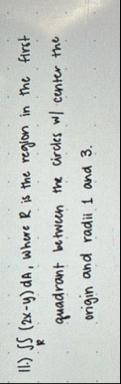 11.) ∬ (2x-y) dA, where R is the region in the first
R
quadrant between the circles w/ center the
origin and radii 1 and 3.